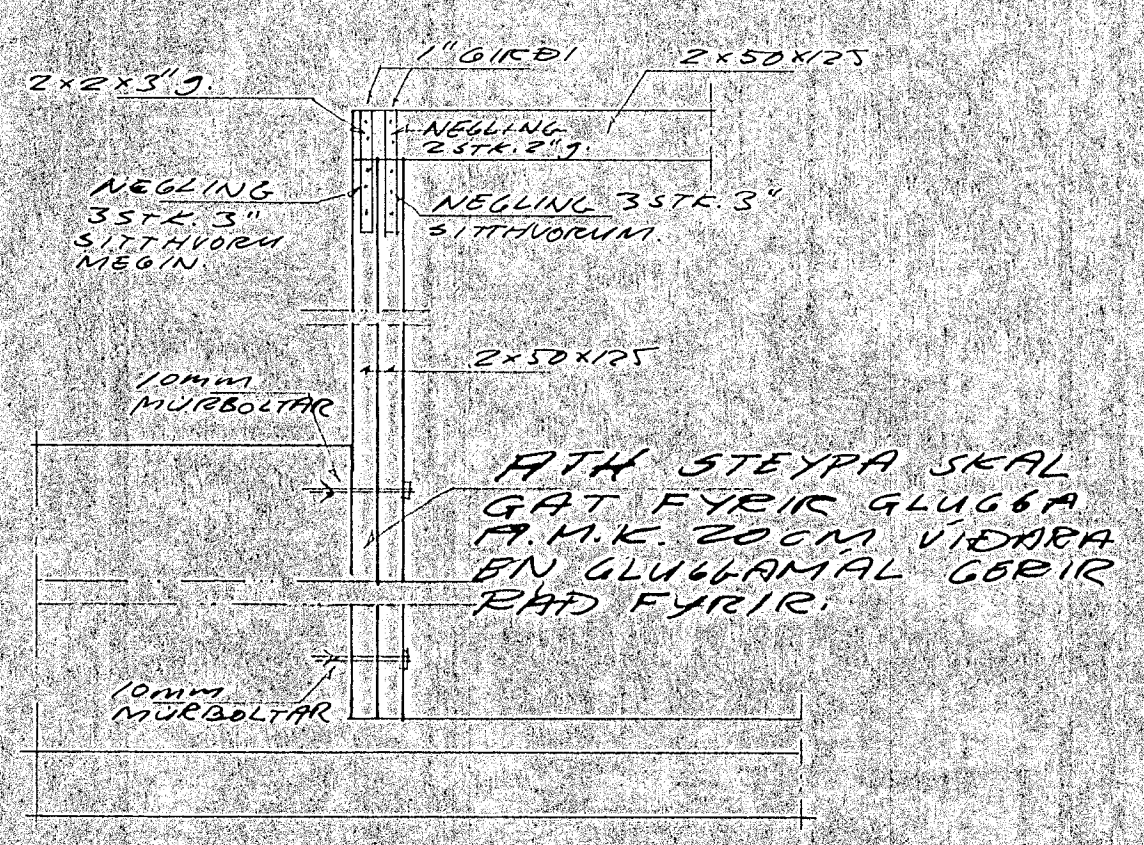 1" GIRÐI
2x50x125
2x2x3" g.
NEGLING
2 STK. 2" g.
NEGLING
3 STK. 3"
SITTHVORU
MEGIN.
NEGLING 3 STK. 3"
SITTHVORUM.
2x50x125
10mm
MÚRBOLTAR
ATH STEYPA SKAL
GAT FYRIR GLUGGA
A.M.K. 20CM VÍÐARA
EN GLUGGAMÁL GERIR
RÁÐ FYRIR.
10mm
MÚRBOLTAR